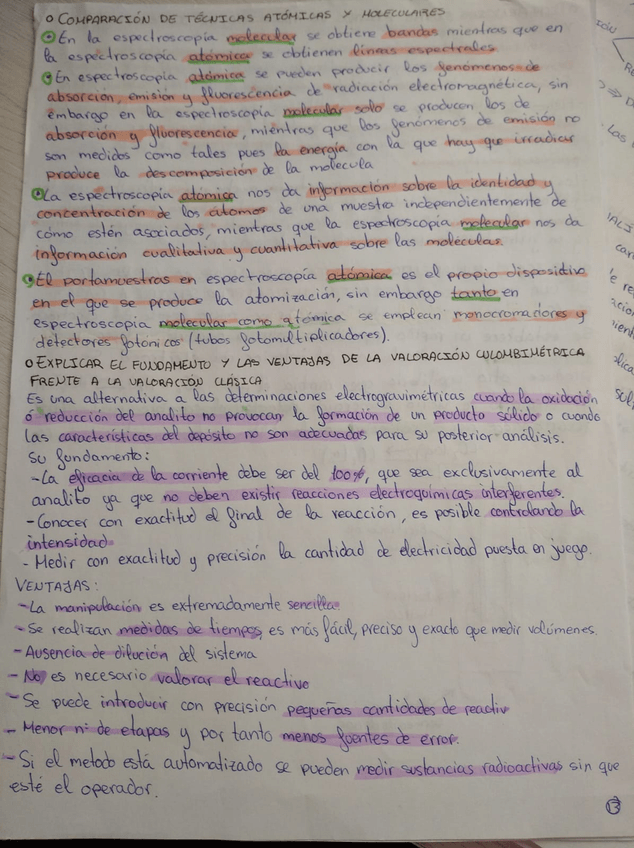 o COMPARACIÓN DE TÉCNICAS ATÓMICAS Y MOLECULARES
En la espectroscopía molecular se obtiene bandas mientras que en
la espectroscopía atómica se obtienen líneas espectrales
En espectroscopía atómica se pueden producir los fenómenos de
absorción, emisión y fluorescencia de radiación electromagnética, sin
embargo en la espectroscopía molecular solo se producen los de
absorción y fluorescencia, mientras que los fenómenos de emisión no
son medidos como tales pues la energía con la que hay que irradiar
produce la descomposición de la molecula
La espectroscopía atómica nos da información sobre la identidad y
concentración de los átomos de una muestra independientemente de
cómo estén asociados, mientras que la espectroscopía molecular nos da
información cualitativa y cuantitativa sobre las moléculas.
El portamuestras en espectroscopía atómica es el propio dispositivo
en el que se produce la atomización, sin embargo tanto en
espectroscopia molecular como atómica se emplean monocromadores y
detectores fotónicos (tubos fotomultiplicadores).
o EXPLICAR EL FUNDAMENTO Y LAS VENTAJAS DE LA VALORACIÓN CULOMBIMÉTRICA
FRENTE A LA VALORACIÓN CLÁSICA
Es una alternativa a las determinaciones electrogravimétricas cuando la oxidación
ó reducción del analito no provocan la formación de un producto sólido o cuando
las características del depósito no son adecuadas para su posterior análisis.
Su fundamento:
-La eficacia de la corriente debe ser del 100%, que sea exclusivamente al
analito ya que no deben existir reacciones electroquímicas interferentes.
-Conocer con exactitud el final de la reacción, es posible controlando la
intensidad.
- Medir con exactitud y precisión la cantidad de electricidad puesta en juego.
VENTAJAS:
-La manipulación es extremadamente sencilla
-Se realizan medidas de tiempos, es más fácil, preciso y exacto que medir volúmenes.
-Ausencia de dilución del sistema
- No es necesario valorar el reactivo
- Se puede introducir con precisión pequeñas cantidades de reactiv
- Menor nº de etapas y por tanto menos fuentes de error.
- Si el metodo está automatizado se pueden medir sustancias radioactivas sin que
esté el operador.
13